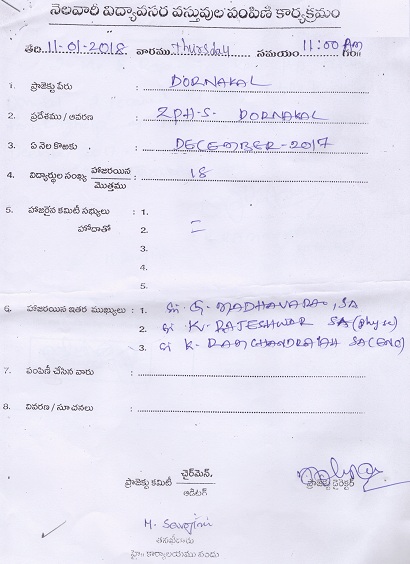 నెలవారీ విద్యావసర వస్తువుల పంపిణి కార్యక్రమం
తేది 11-01-2018 వారము Thursday సమయం 11:00 AM గం॥
1. ప్రాజెక్టు పేరు : DORNAKAL
2. ప్రదేశము / ఆవరణ : Z.P.H.S. DORNAKAL
3. ఏ నెల కొఱకు : DECEMBER-2017
4. విద్యార్థుల సంఖ్య హాజరయిన : 18
మొత్తము
5. హాజరైన కమిటీ సభ్యులు : 1.
హోదాతో 2. =
3.
4.
5.
6. హాజరయిన ఇతర ముఖ్యులు : 1. Sri. G. MADHAVARAO, SA
2. Sri K. RAJESHWAR SA (phys)
3. Sri K. RAMCHANDRAIAH SA (ENG)
7. పంపిణీ చేసిన వారు :
8. వివరణ / సూచనలు :
ప్రాజెక్టు కమిటీ చైర్‌మెన్. ప్రాజెక్టు డైరెక్టర్
ఆడిటర్
M. Sarojini
తనఖీదారు
హై॥ కార్యాలయము నందు